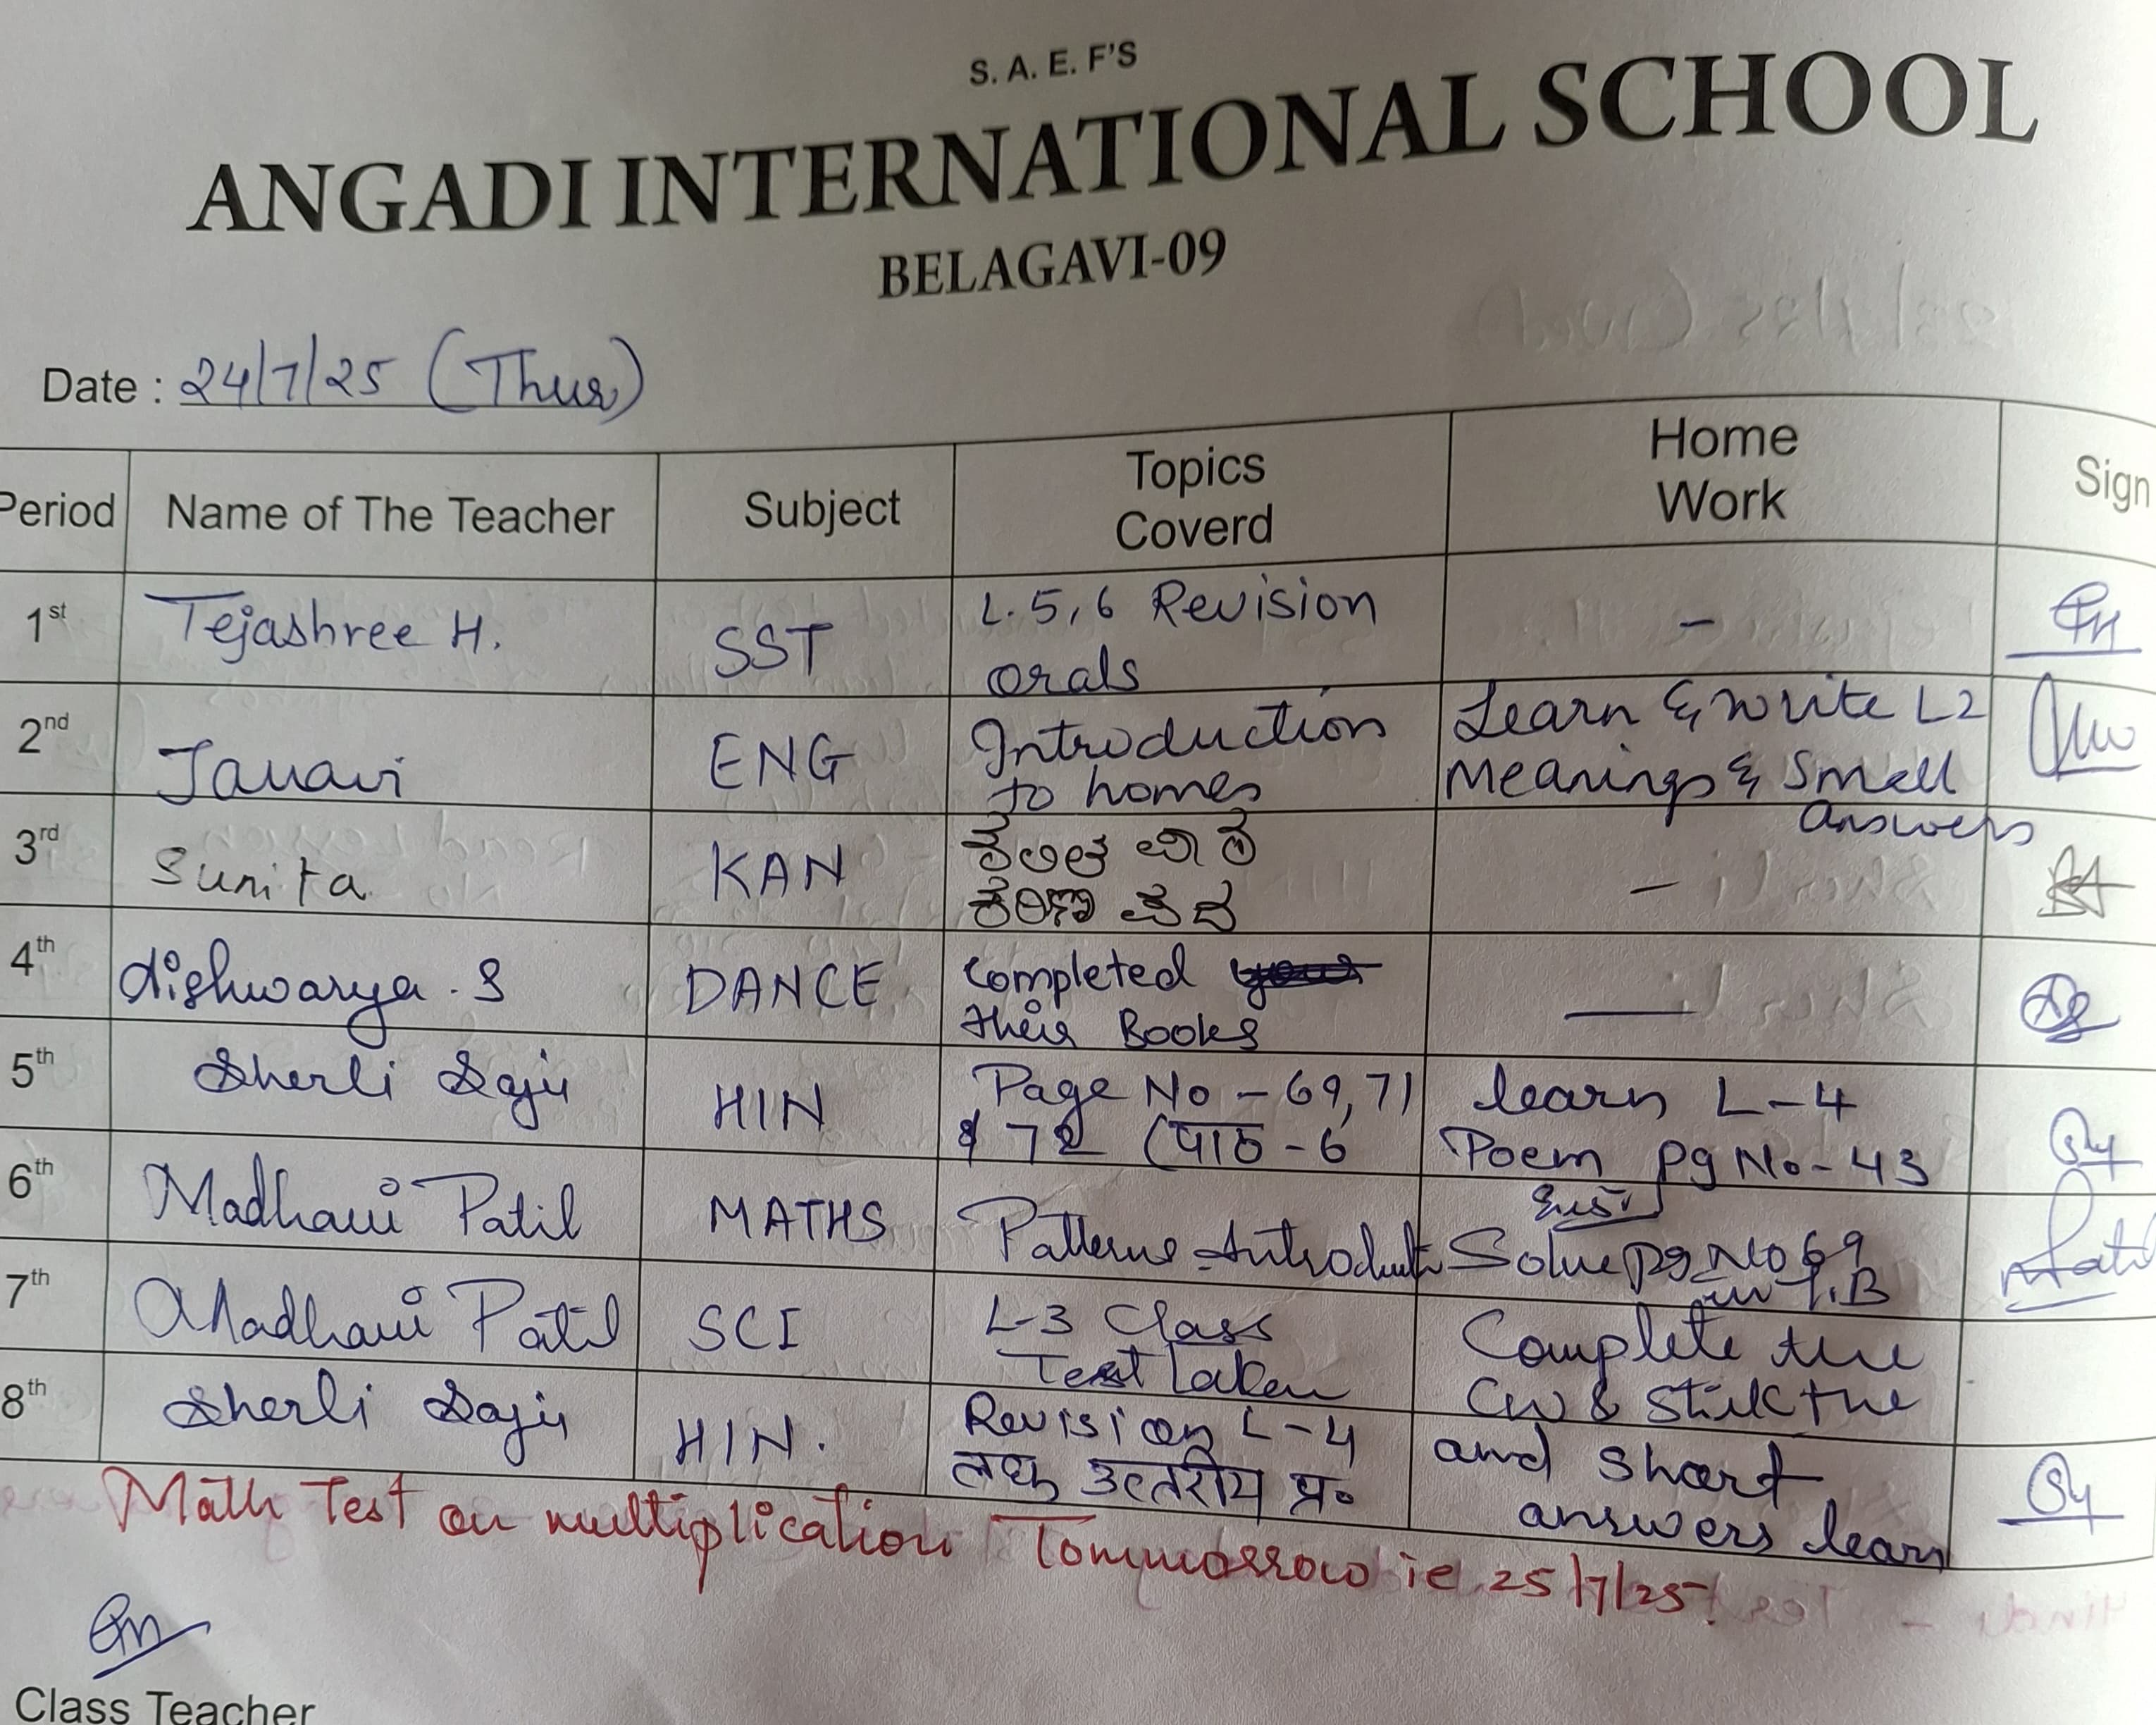 S. A. E. F'S
ANGADI INTERNATIONAL SCHOOL
BELAGAVI-09
Date : 24/7/25 (Thur)
Period Name of The Teacher Subject Topics Coverd Home Work Sign
1st Tejashree H. SST L.5,6 Revision orals -
2nd Janavi ENG Introduction to homes Learn & write L2 Meanings & Small answers
3rd Sunita KAN -
4th Aishwarya . S DANCE Completed their Books —
5th Sherli Saju HIN Page No - 69, 71 & 72 (पाठ - 6 learn L-4 Poem pg No - 43
6th Madhavi Patil MATHS Patterns Solve pg No 69 in T.B
7th Madhavi Patil SCI L-3 Class Test taken Complete the CW & stick the
8th Sherli Saju HIN. Revision L-4 लघु उत्तरीय प्र० and short answers learn
Math Test on multiplication Tommorrow ie 25/7/25!
Class Teacher